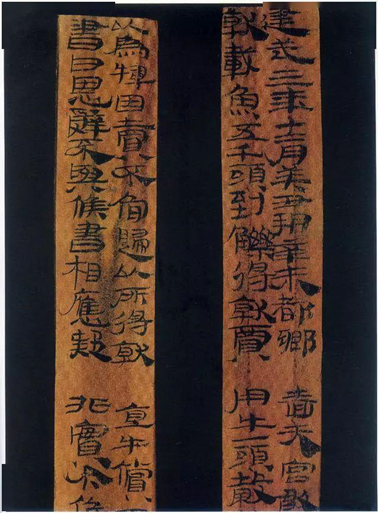 建武三年十二月癸丑朔辛未都鄉 嗇夫宮敢
就載魚五千頭到觻得就賈 用牛一頭穀
以為犅因賣不肯歸以所得就 直牛償
書曰恩辤不與候書相應疑 非實今候